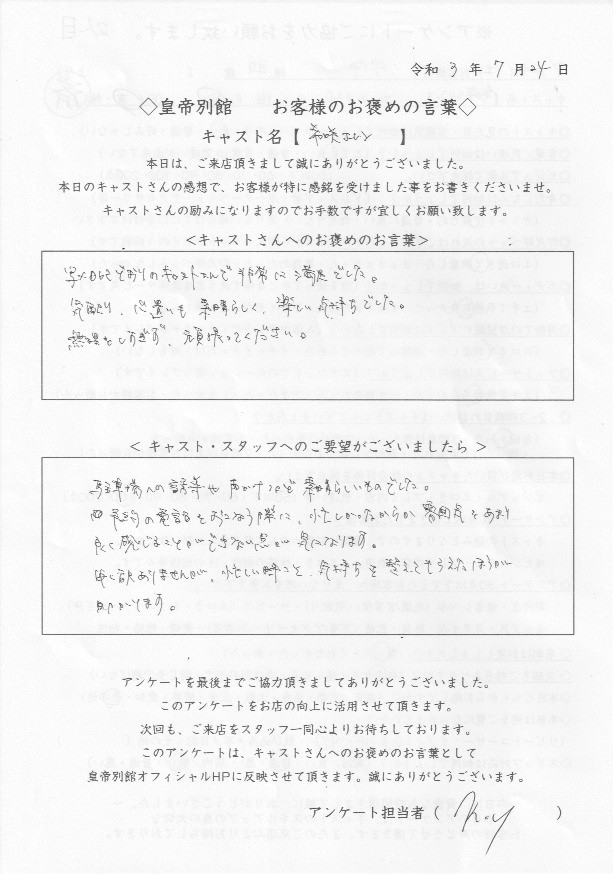 令和 3 年 7 月 24 日
◇皇帝別館 お客様のお褒めの言葉◇
キャスト名【 】
本日は、ご来店頂きまして誠にありがとうございました。
本日のキャストさんの感想で、お客様が特に感銘を受けました事をお書きくださいませ。
キャストさんの励みになりますのでお手数ですが宜しくお願い致します。
<キャストさんへのお褒めのお言葉>
どおりのキャストさんで非常に満足でした。
気配り、心遣いも素晴らしく、楽しい気持ちでした。
無理をしすぎず、頑張ってください。
< キャスト・スタッフへのご要望がございましたら >
駐車場への誘導や声かけなど素�らしいものでした。
の電話をおこなう際に、忙しいからか雰囲気をあまり
良く感じることができない点が気になります。
申し訳ありませんが、忙しい時こそ、気持ちを整えてもらえたほうが
助かります。
アンケートを最後までご協力頂きましてありがとうございました。
このアンケートはお店の向上に活用させて頂きます。
次回も、ご来店をスタッフ一同心よりお待ちしております。
このアンケートは、キャストさんへのお褒めのお言葉として
皇帝別館オフィシャルHPに反映させて頂きます。誠にありがとうございます。
アンケート担当者 ( )